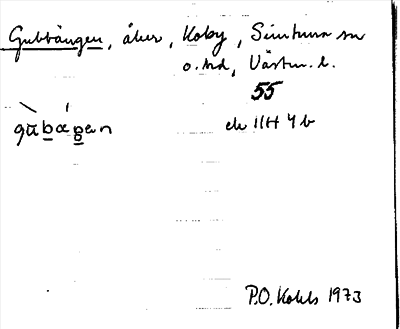 Gubbängen, åker, Koby, Simtuna sn
o. hd, Västm. l.
55
ek 11H 4b
P.O. Kohls 1973